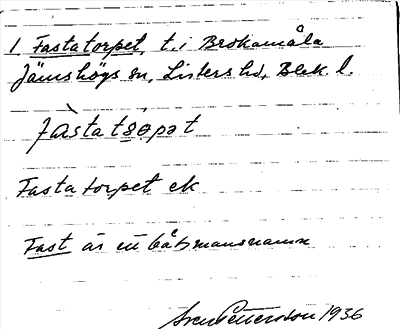 1. Fastatorpet, t. i Brokamåla
Jämshögs sn, Listers hd, Blek. l.
fàstatǫ́pət
Fastatorpet ek
Fast är ett båtsmansnamn
Sven Pettersson 1936